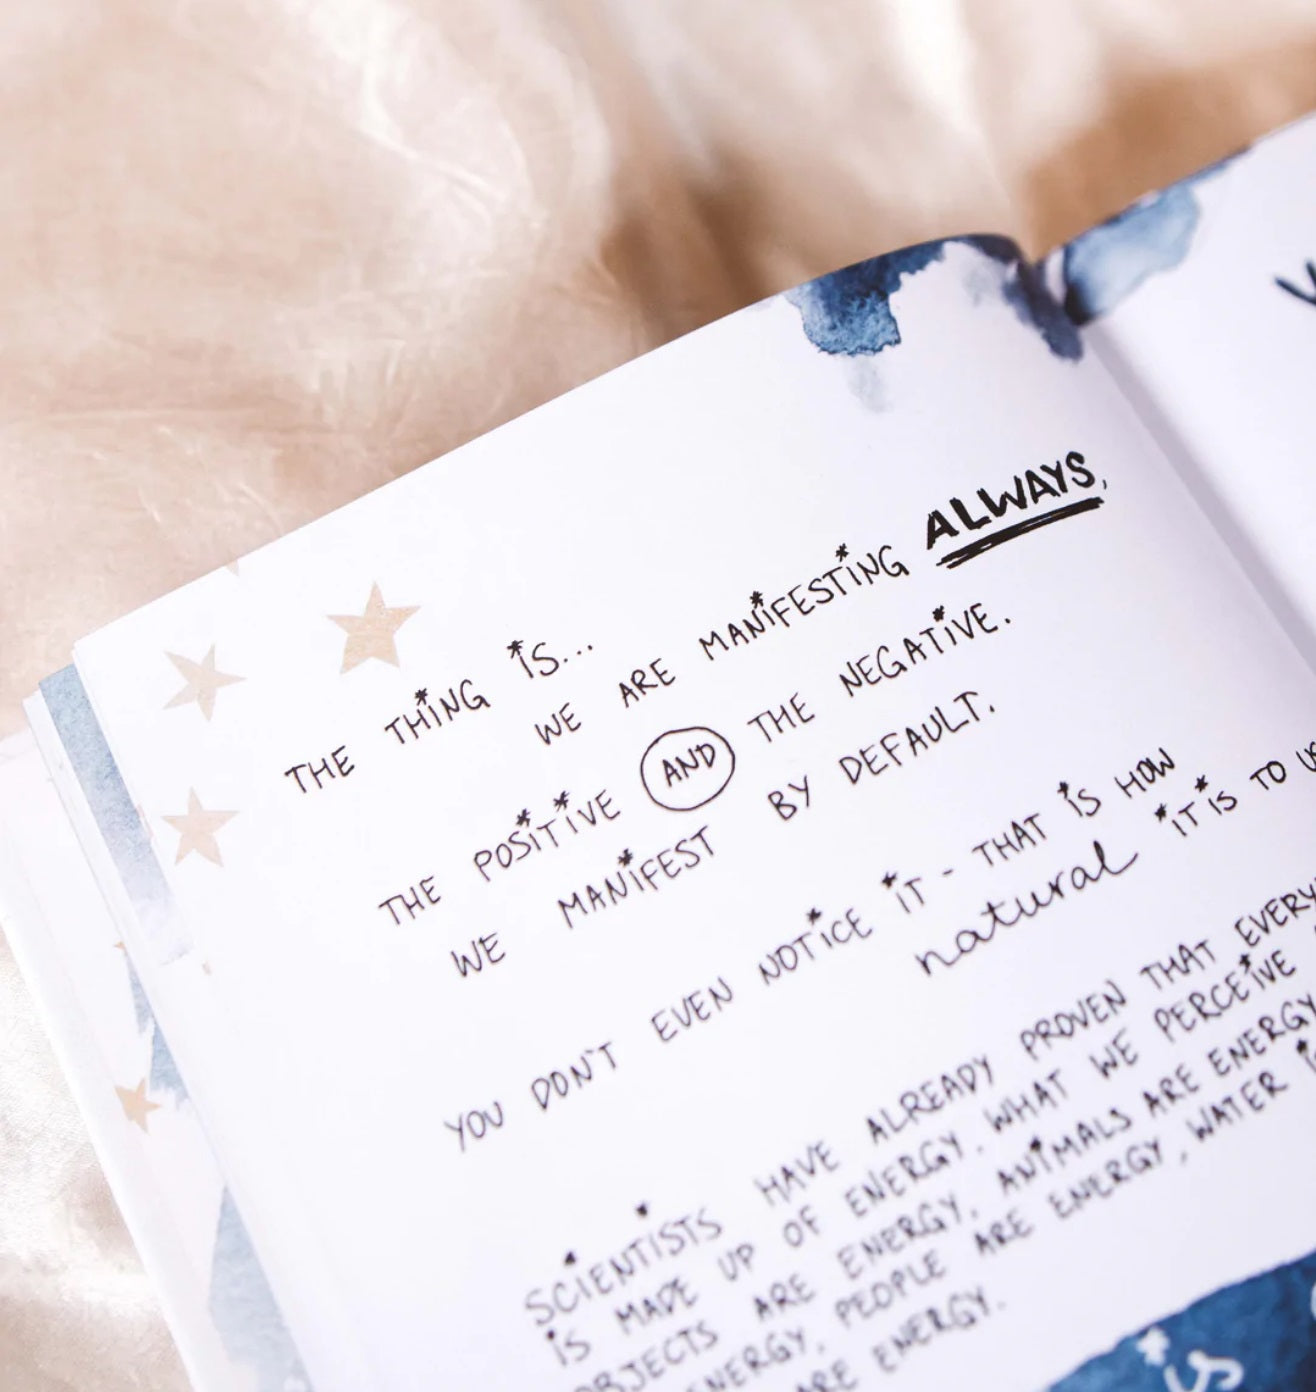 THE THING IS...
WE ARE MANIFESTING ALWAYS,
THE POSITIVE AND THE NEGATIVE.
WE MANIFEST BY DEFAULT.
YOU DON'T EVEN NOTICE IT - THAT IS HOW
natural IT IS TO
SCIENTISTS HAVE ALREADY PROVEN THAT
IS MADE UP OF ENERGY. WHAT WE PERCEIVE
OBJECTS ARE ENERGY. ANIMALS ARE ENERGY
ENERGY. PEOPLE ARE ENERGY, WATER
ARE ENERGY.
is